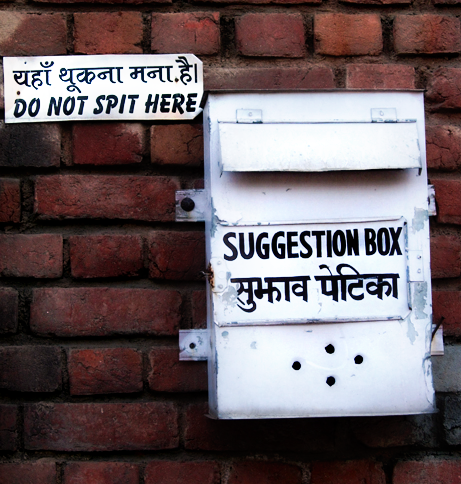 यहाँ थूकना मना है।
DO NOT SPIT HERE
SUGGESTION BOX
सुझाव पेटिका